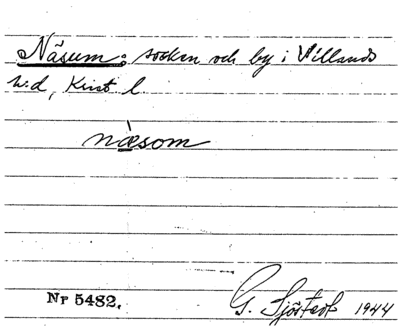 Näsum: socken och by i Villands
h:d, Krist l.
næ̀som
Nr 5482.
G. Sjöstedt 1944